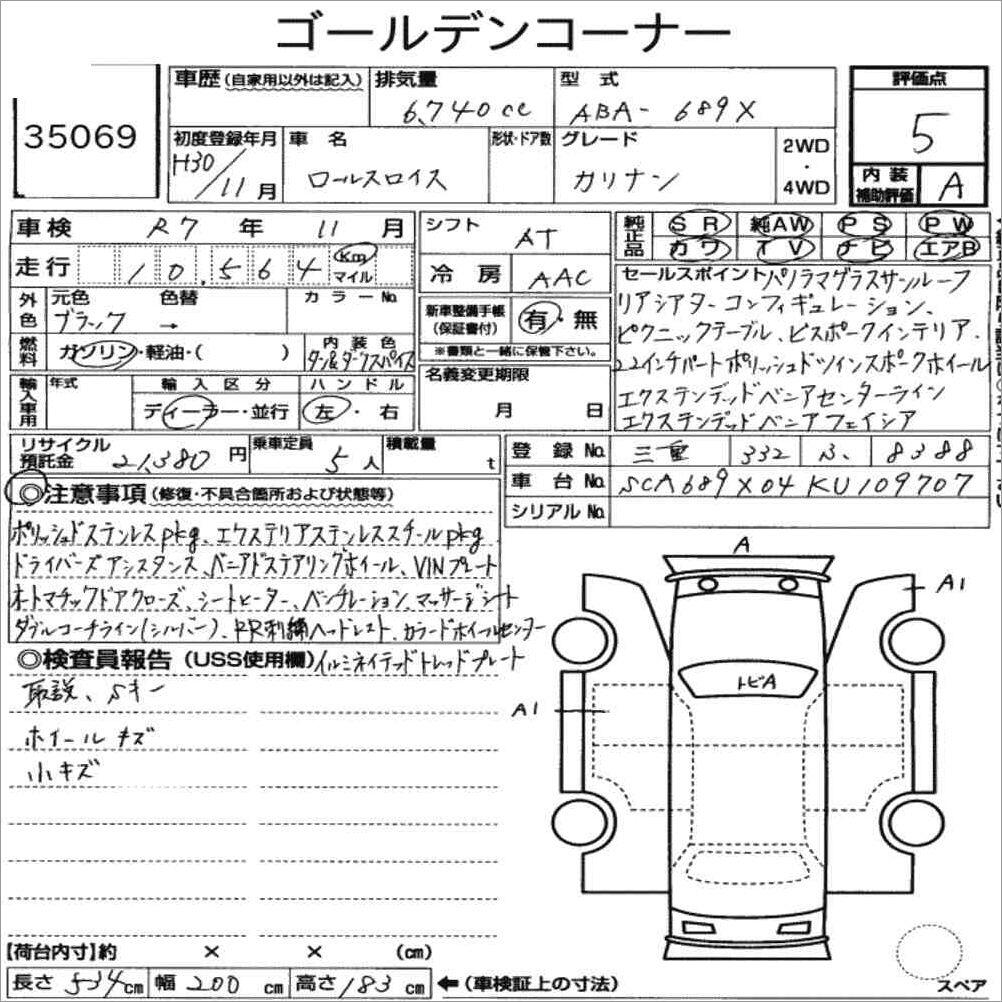 ゴールデンコーナー
35069
車歴(自家用以外は記入) 排気量 型式 評価点
6,740cc ABA- 689X 5
初度登録年月 車名 形状・ドア数 グレード 2WD・4WD
H30/11月 ロールスロイス カリナン
内装補助評価 A
車検 R7年 11月 シフト AT
純正品 SR 純AW PS PW
カワ TV ナビ エアB
走行 10,564 Km マイル 冷房 AAC
外色 元色 色替 カラーNo.
ブラック →
新車整備手帳(保証書付) 有・無
※書類と一緒に保管下さい。
燃料 ガソリン・軽油・( ) 内装色 タン&ダークスパイス
名義変更期限 月 日
輸入車用 年式 輸入区分 ハンドル
ディーラー・並行 左・右
セールスポイント パノラマグラスサンルーフ
リアシアターコンフィギュレーション、
ピクニックテーブル、ビスポークインテリア、
22インチパートポリッシュドツインスポークホイール
エクステンデッドベニアセンターライン
エクステンデッドベニアフェイシア
リサイクル預託金 21,380円 乗車定員 5人 積載量 t
登録No. 三重 332 ふ 8388
車台No. SCA689X04KU109707
シリアルNo.
◎注意事項(修復・不具合箇所および状態等)
ポリッシュドステンレスpkg、エクステリアステンレススチールpkg
ドライバーズアシスタンス、ベニアドステアリングホイール、VINプレート
オートマチックドアクローズ、シートヒーター、ベンチレーション、マッサージシート
ダブルコーチライン(シルバー)、RR刺繍ヘッドレスト、カラードホイールセンター
◎検査員報告(USS使用欄) イルミネイテッドトレッドプレート
取説、Sキー
ホイールキズ
小キズ
A
A1
トビA
A1
【荷台内寸】約 × × (cm)
長さ 534cm 幅 200cm 高さ 183cm ←(車検証上の寸法)
スペア